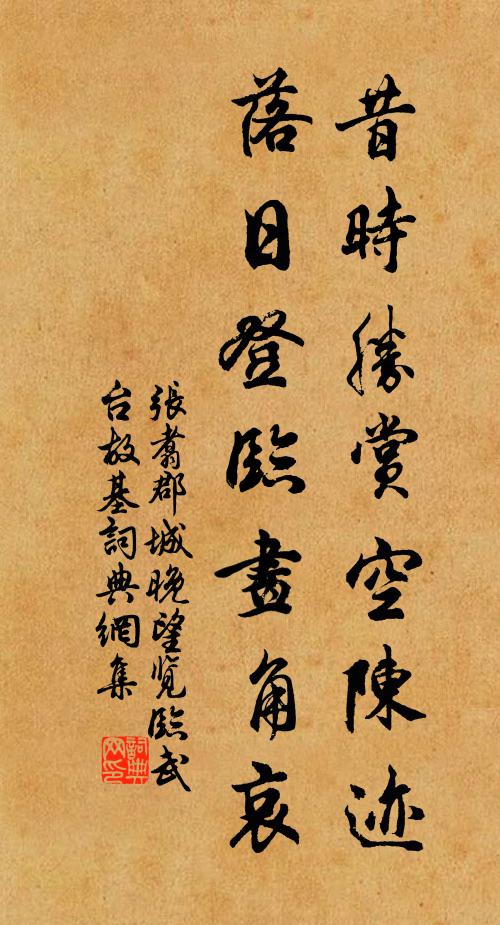 昔時勝賞空陳迹
落日登臨畫角哀
張翥郡城晚望覽臨武
台故基詞典網集
詞典网印